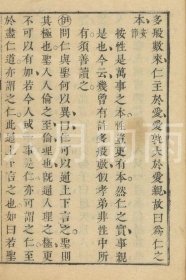 多般數來仁主於愛愛莫大於愛親故曰爲仁之
本
按性是萬事之本性豈更有本然仁之實事親
是也今云幾曾有許多般數似孝弟非性中所
有須善讀之
問仁與聖何以異曰仁可以通上下言之聖則
其極也聖人人倫之至倫理也既通人理之極更
不可以有加若今人或一事是仁亦可謂之仁至
於盡仁道亦謂之仁此通上下言之也如曰若聖